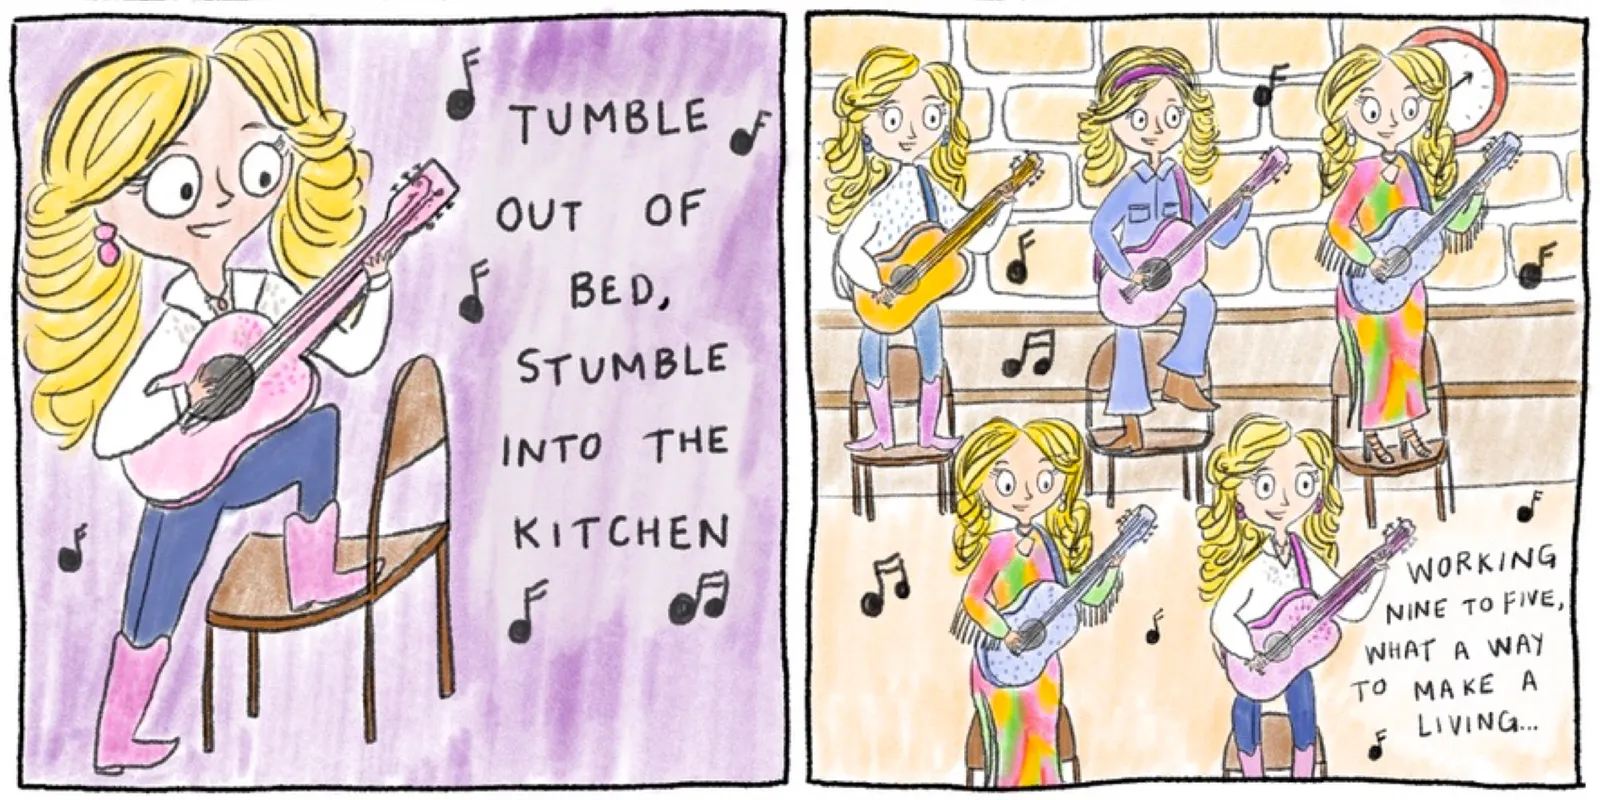 TUMBLE
OUT OF
BED,
STUMBLE
INTO THE
KITCHEN
WORKING
NINE TO FIVE,
WHAT A WAY
TO MAKE A
LIVING...